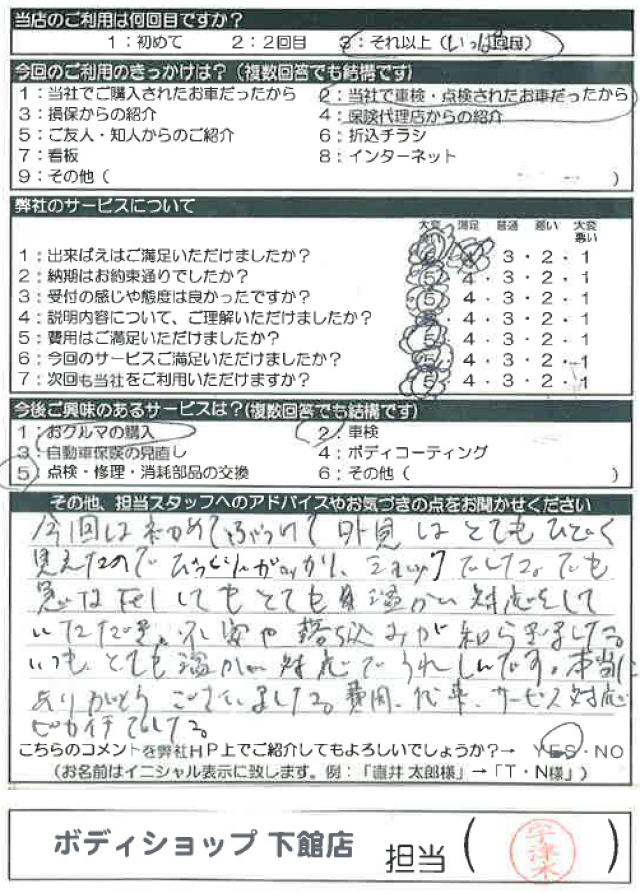 当店のご利用は何回目ですか？
1：初めて 2：2回目 3：それ以上（いっぱい回目）
今回のご利用のきっかけは？（複数回答でも結構です）
1：当社でご購入されたお車だったから 2：当社で車検・点検されたお車だったから
3：損保からの紹介 4：保険代理店からの紹介
5：ご友人・知人からのご紹介 6：折込チラシ
7：看板 8：インターネット
9：その他（ ）
弊社のサービスについて
大変良い 満足 普通 悪い 大変悪い
1：出来ばえはご満足いただけましたか？ 5・4・3・2・1
2：納期はお約束通りでしたか？ 5・4・3・2・1
3：受付の感じや態度は良かったですか？ 5・4・3・2・1
4：説明内容について、ご理解いただけましたか？ 5・4・3・2・1
5：費用はご満足いただけましたか？ 5・4・3・2・1
6：今回のサービスご満足いただけましたか？ 5・4・3・2・1
7：次回も当社をご利用いただけますか？ 5・4・3・2・1
今後ご興味のあるサービスは？（複数回答でも結構です）
1：おクルマの購入 2：車検
3：自動車保険の見直し 4：ボディコーティング
5：点検・修理・消耗部品の交換 6：その他（ ）
その他、担当スタッフへのアドバイスやお気づきの点をお聞かせください
今回は初めてぶつけて外見はとてもひどく
見えたのでびっくりがっかり、ショックでした。でも
急な で してもとても 温かい対応をして
いただき、不安や落ち込みが和らぎました。
いつも、とても温かい対応でうれしいです。本当に
ありがとうございました。費用、代車、サービス対応
ピカイチでした。
こちらのコメントを弊社HP上でご紹介してもよろしいでしょうか？→ YES・NO
（お名前はイニシャル表示に致します。例：「直井 太郎様」→「T・N様」）
ボディショップ 下館店 担当（宇津木）